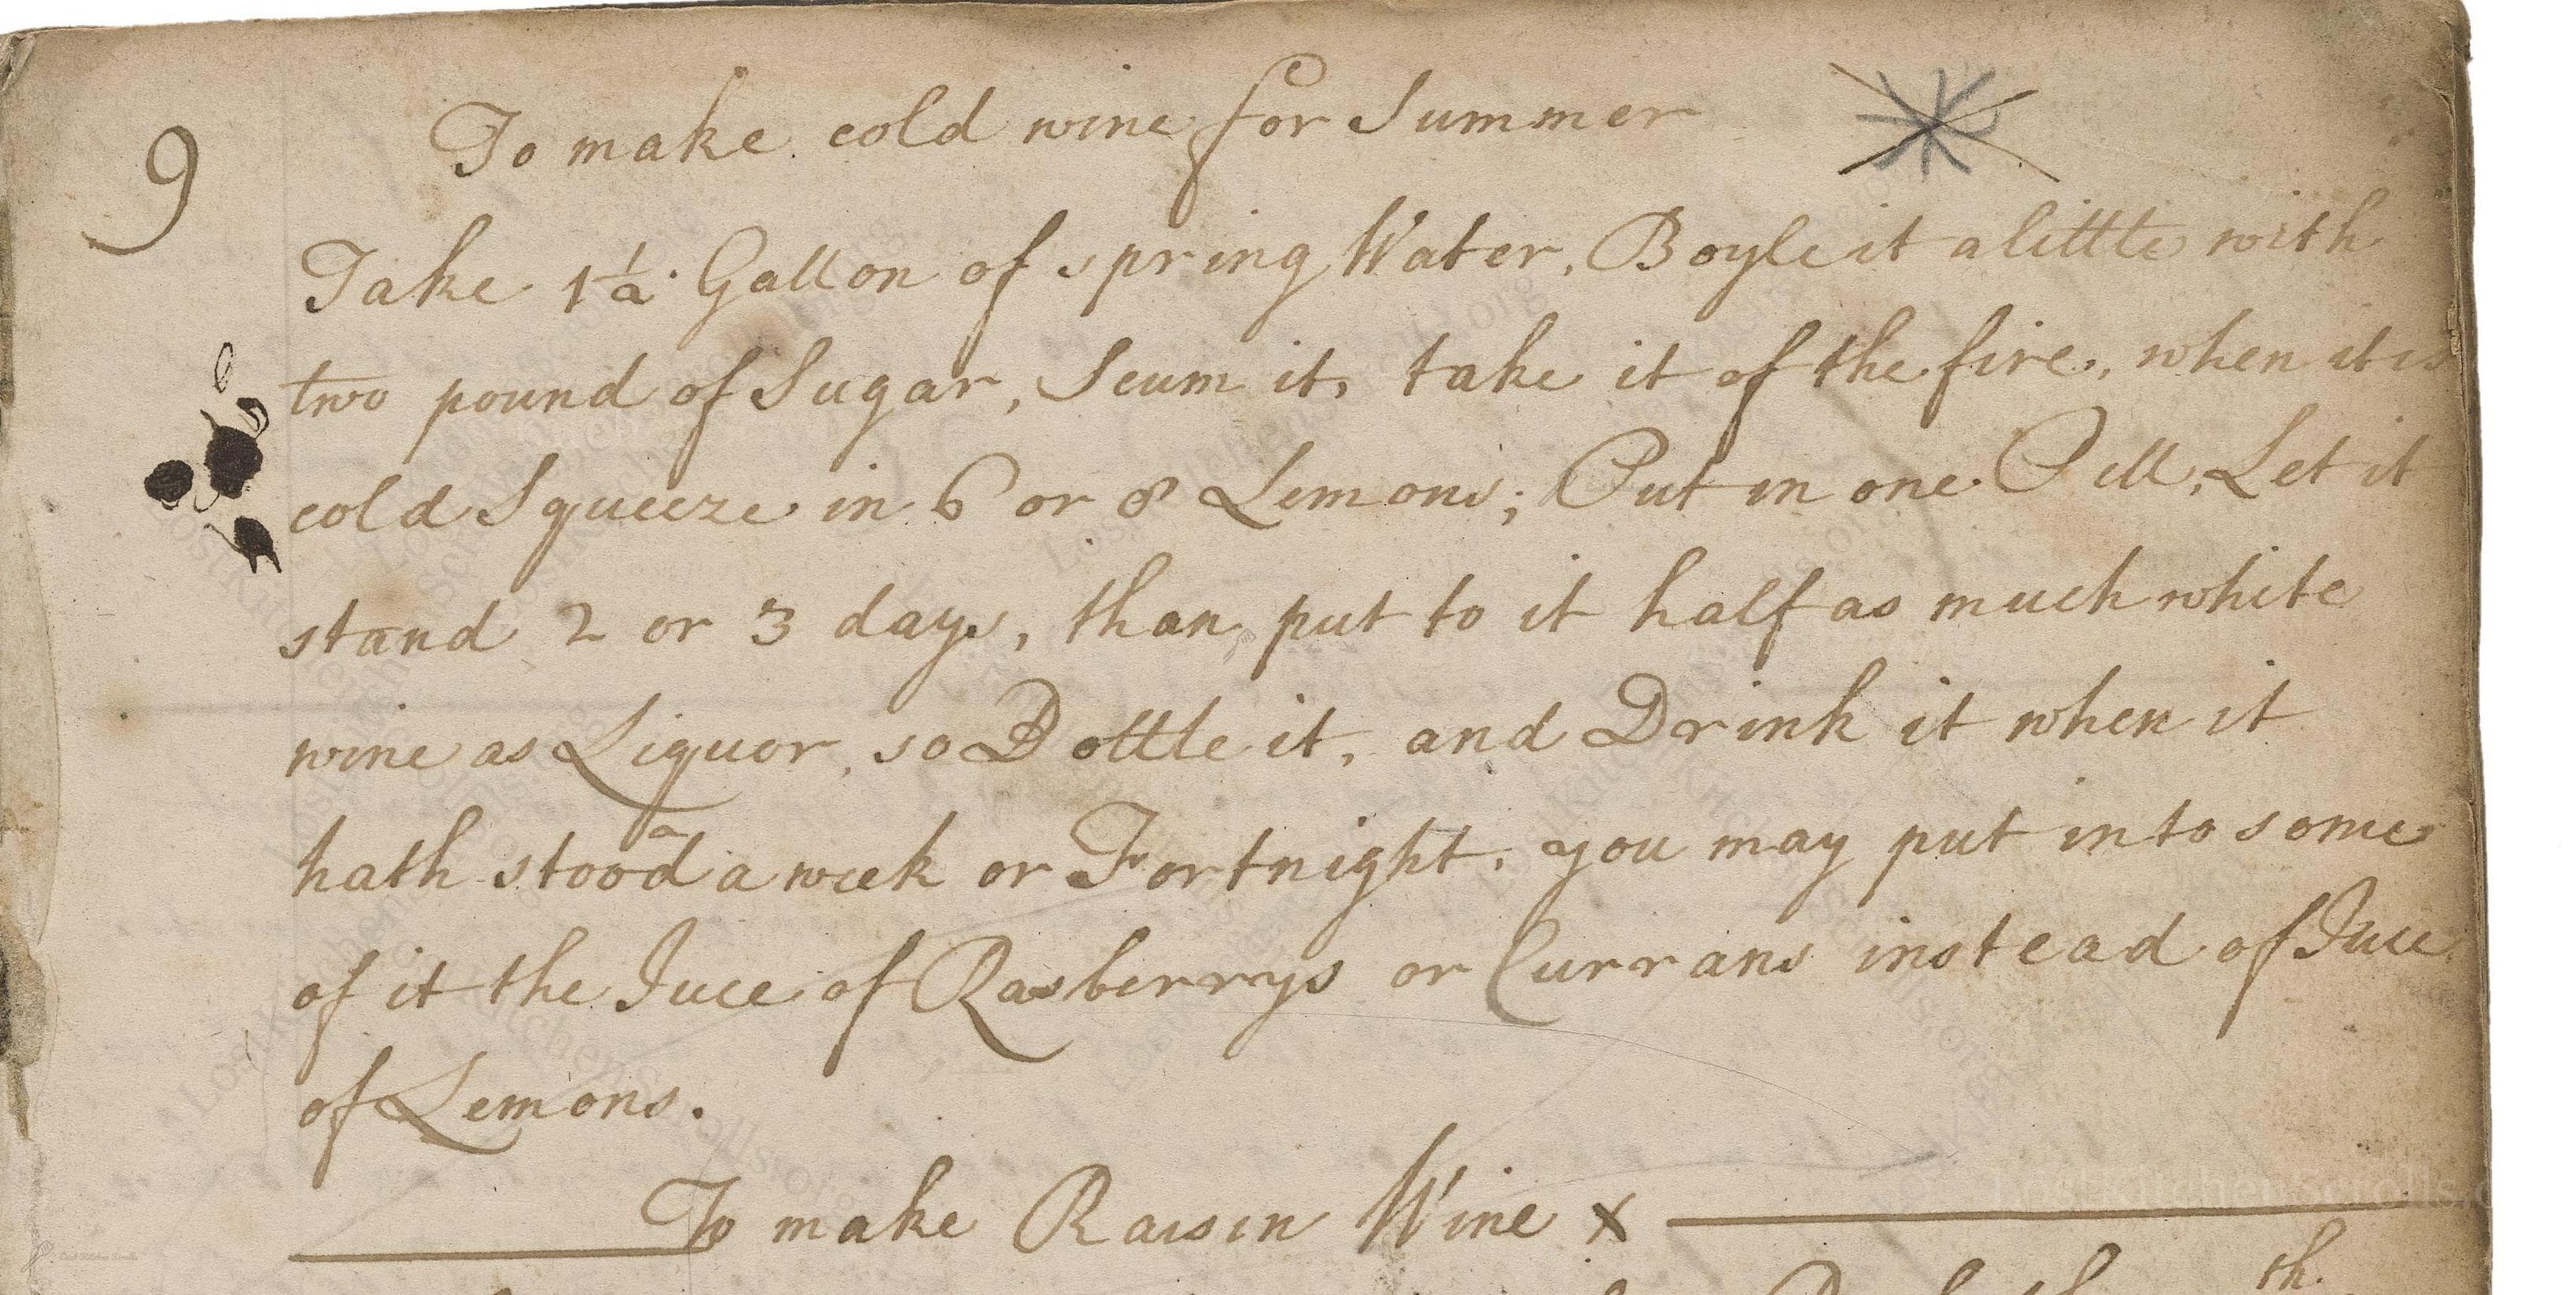 9
To make cold wine for Summer
Take 1½ Gallon of spring Water, Boyle it a little with
two pound of Sugar, Scum it, take it of the fire, when it is
cold Squeeze in 6 or 8 Lemons; Put in one Pill, Let it
stand 2 or 3 days, than put to it half as much white
wine as Liquor, so Bottle it, and Drink it when it
hath stood a week or Fortnight, you may put into some
of it the Juce of Rasberrys or Currans instead of Juce
of Lemons.
To make Raisin Wine x
th.